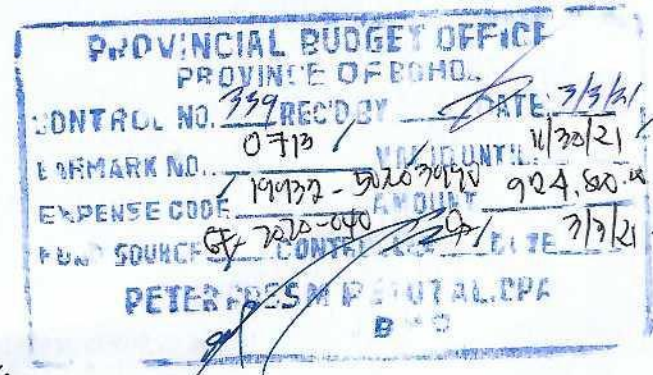 PROVINCIAL BUDGET OFFICE
PROVINCE OF BOHOL
CONTROL NO. 339 REC'D BY DATE: 3/3/21
EARMARK NO. 0713 VALID UNTIL 11/30/21
EXPENSE CODE 19932 - AMOUNT 924,500.00
FUND SOURCE GF 2020-040 DATE 3/3/21
PETER